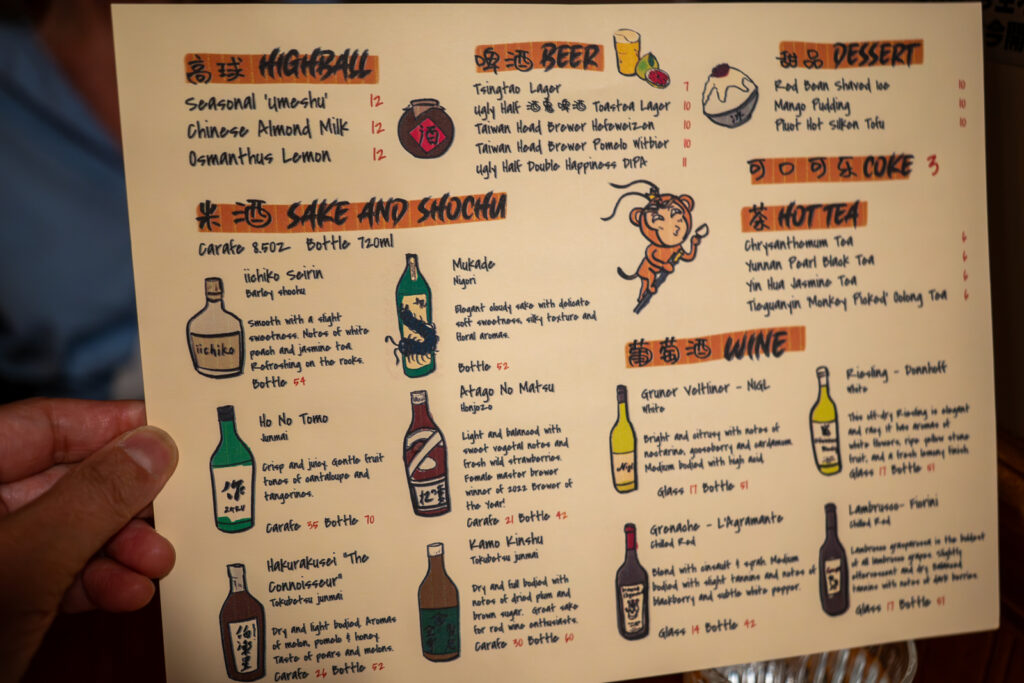 高球 HIGHBALL
Seasonal 'Umeshu' 12
Chinese Almond Milk 12
Osmanthus Lemon 12
酒
啤酒 BEER
Tsingtao Lager 7
Ugly Half 酒鬼啤酒 Toastea Lager 10
Taiwan Head Brewer Hefeweizen 10
Taiwan Head Brewer Pomelo Witbier 10
Ugly Half Double Happiness DIPA 11
甜品 DESSERT
Red Bean Shaved Ice 10
Mango Pudding 10
Pluot Hot Silken Tofu 10
冰
可口可乐 COKE 3
茶 HOT TEA
Chrysanthemum Tea 6
Yunnan Pearl Black Tea 6
Yin Hua Jasmine Tea 6
Tieguanyin 'Monkey Picked' Oolong Tea 6
米酒 SAKE AND SHOCHU
Carafe 8.5oz Bottle 720ml
iichiko Seirin
Barley shochu
Smooth with a slight
sweetness. Notes of white
peach and jasmine tea.
Refreshing on the rocks.
Bottle 54
iichiko
Mukade
Nigori
Elegant cloudy sake with delicate
soft sweetness, silky texture and
floral aromas.
Bottle 52
Ho No Tomo
Junmai
Crisp and juicy. Gentle fruit
tones of cantaloupe and
tangerines.
Carafe 35 Bottle 70
Atago No Matsu
Honjozo
Light and balanced with
sweet vegetal notes and
fresh wild strawberries.
Female master brewer
winner of 2022 Brewer of
the Year!
Carafe 21 Bottle 42
Hakurakusei "The
Connoisseur"
Tokubetsu junmai
Dry and light bodied. Aromas
of melon, pomelo & honey.
Taste of pears and melons.
Carafe 26 Bottle 52
Kamo Kinshu
Tokubetsu junmai
Dry and full bodied with
notes of dried plum and
brown sugar. Great sake
for red wine enthusiasts.
Carafe 30 Bottle 60
葡萄酒 WINE
Gruner Veltliner - NIGL
White
Bright and citrusy with notes of
nectarine, gooseberry and cardamom.
Medium bodied with high acid.
Glass 17 Bottle 51
Nigl
Riesling - Donnhoff
White
This off-dry Riesling is elegant
and racy. It has aromas of
white flowers, ripe yellow stone
fruit, and a fresh lemony finish
Glass 17 Bottle 51
Grenache - L'Agramante
Chilled Red
Blend with cinsault & syrah. Medium
bodied with slight tannins and notes of
blackberry and subtle white pepper.
Glass 14 Bottle 42
Lambrusco- Fiorini
Chilled Red
Lambrusco grasparossa is the boldest
of all lambrusco grapes. Slightly
effervescent and dry. Balanced
tannins with notes of dark berries.
Glass 17 Bottle 51